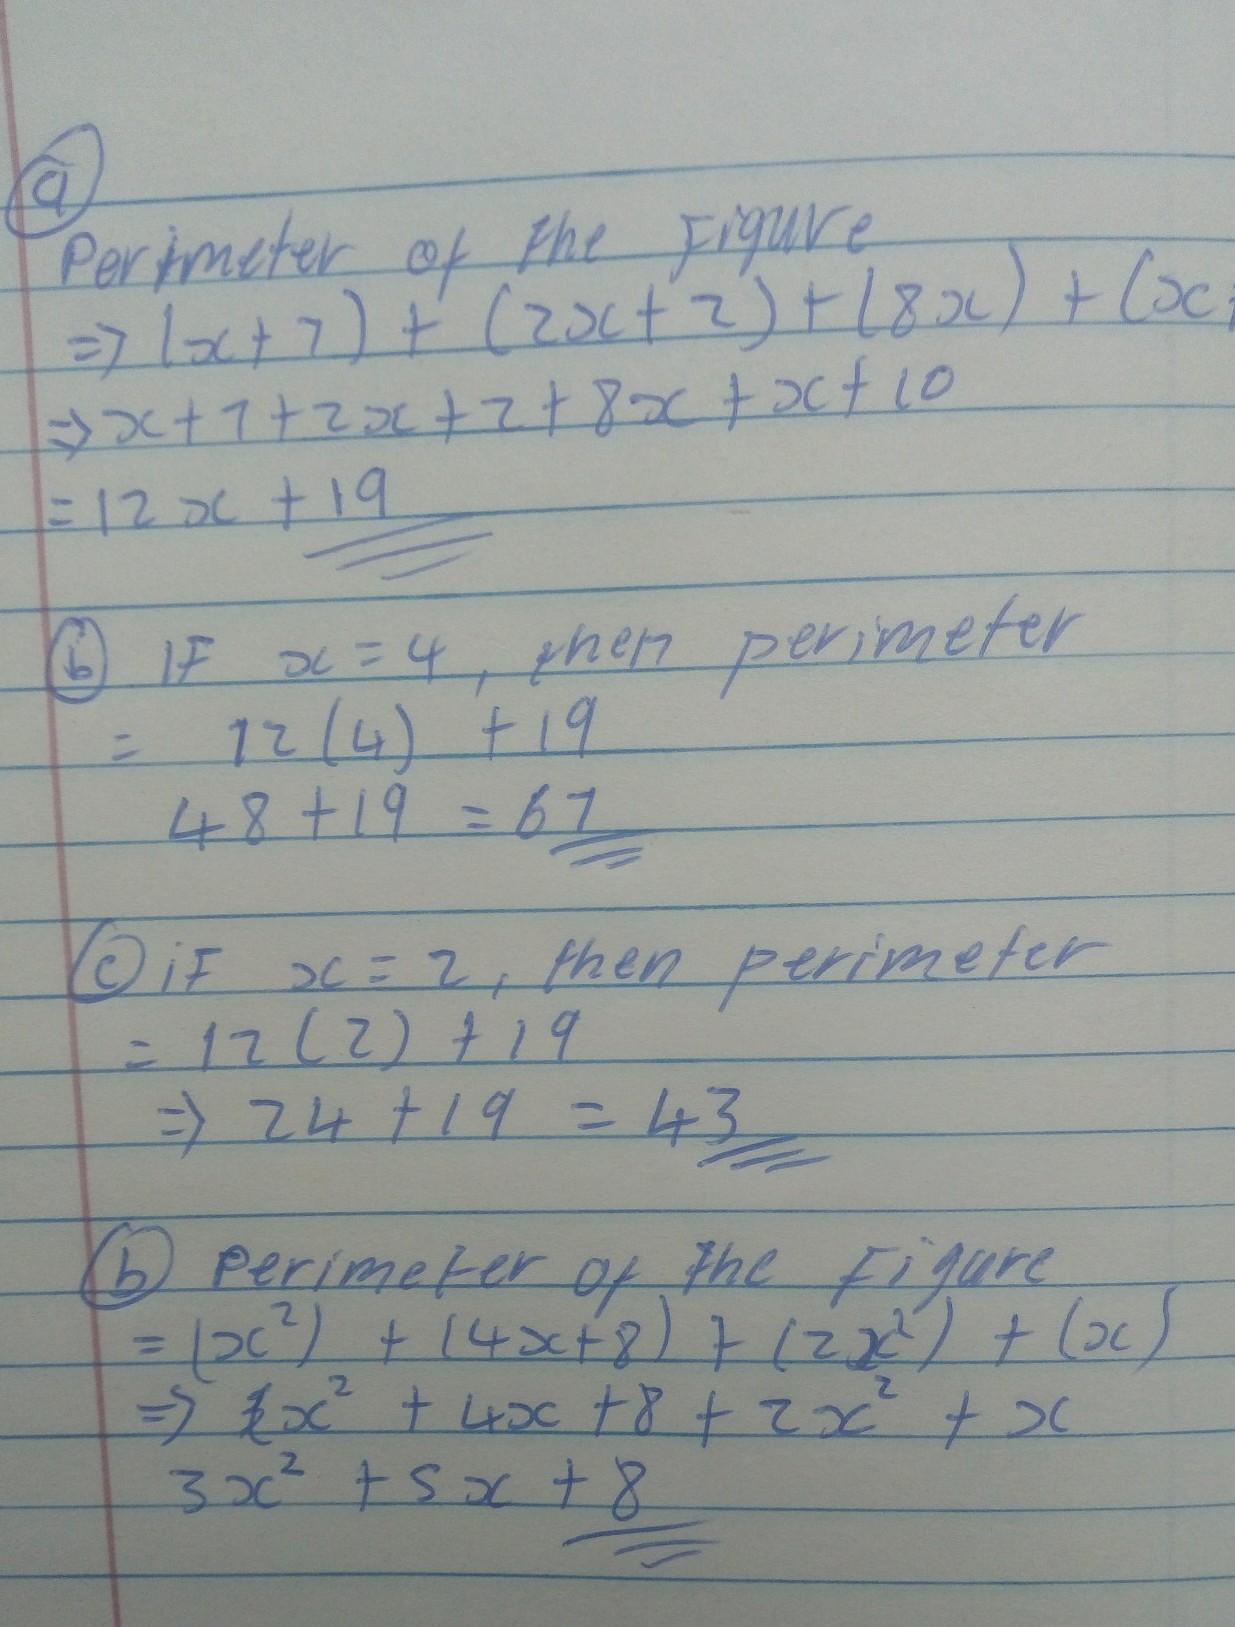 a
Perimeter of the Figure
=> (x+7) + (2x+2) + (8x) + (x+
=> x+7+2x+2+8x+x+10
= 12x + 19
b IF x = 4, then perimeter
= 12(4) + 19
48 + 19 = 67
c iF x = 2, then perimeter
= 12(2) + 19
=> 24 + 19 = 43
b Perimeter of the Figure
= (x²) + (4x+8) + (2x²) + (x)
=> x² + 4x + 8 + 2x² + x
3x² + 5x + 8